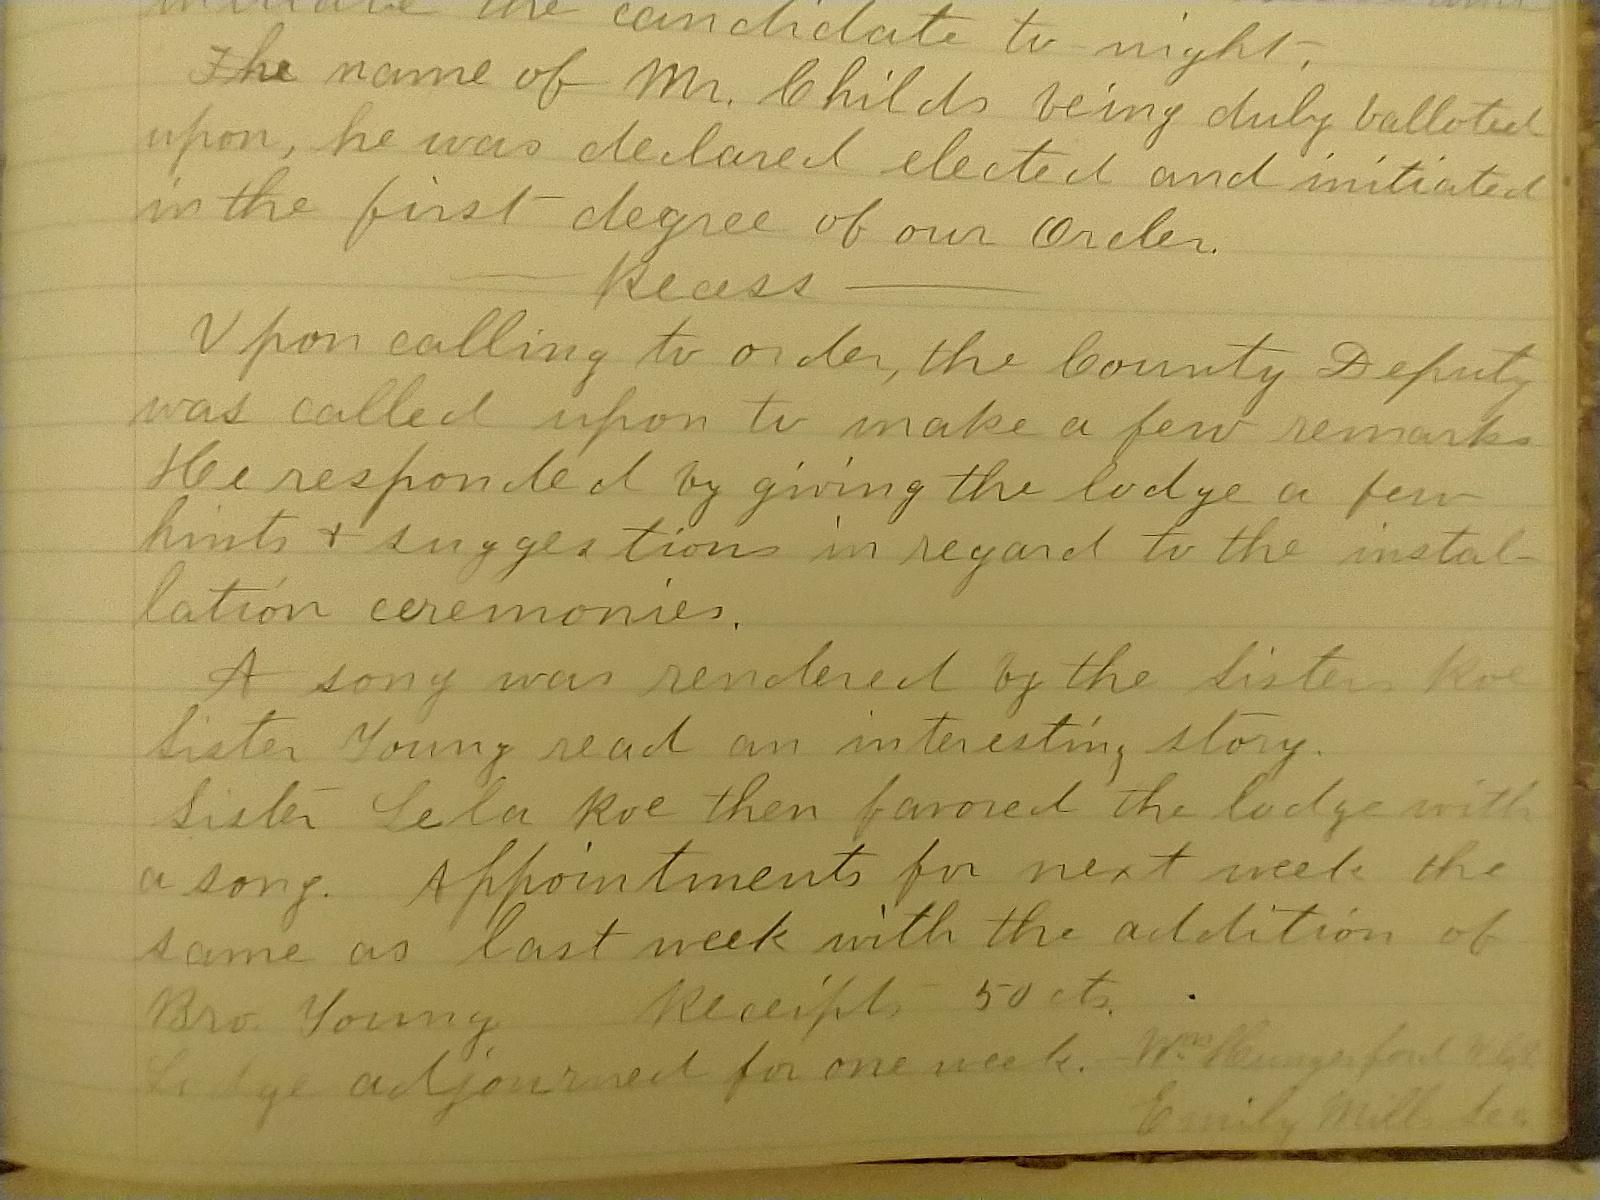 the candidate to night.
The name of Mr. Childs being duly balloted
upon, he was declared elected and initiated
in the first degree of our Order.
— Recess —
Upon calling to order, the County Deputy
was called upon to make a few remarks
He responded by giving the lodge a few
hints & suggestions in regard to the instal-
lation ceremonies.
A song was rendered by the Sisters Roe
Sister Young read an interesting story.
Sister Lela Roe then favored the lodge with
a song. Appointments for next week the
same as last week with the addition of
Bro. Young Receipts 50 cts.
Lodge adjourned for one week. Wm Hungerford
Emily Mills Sec.